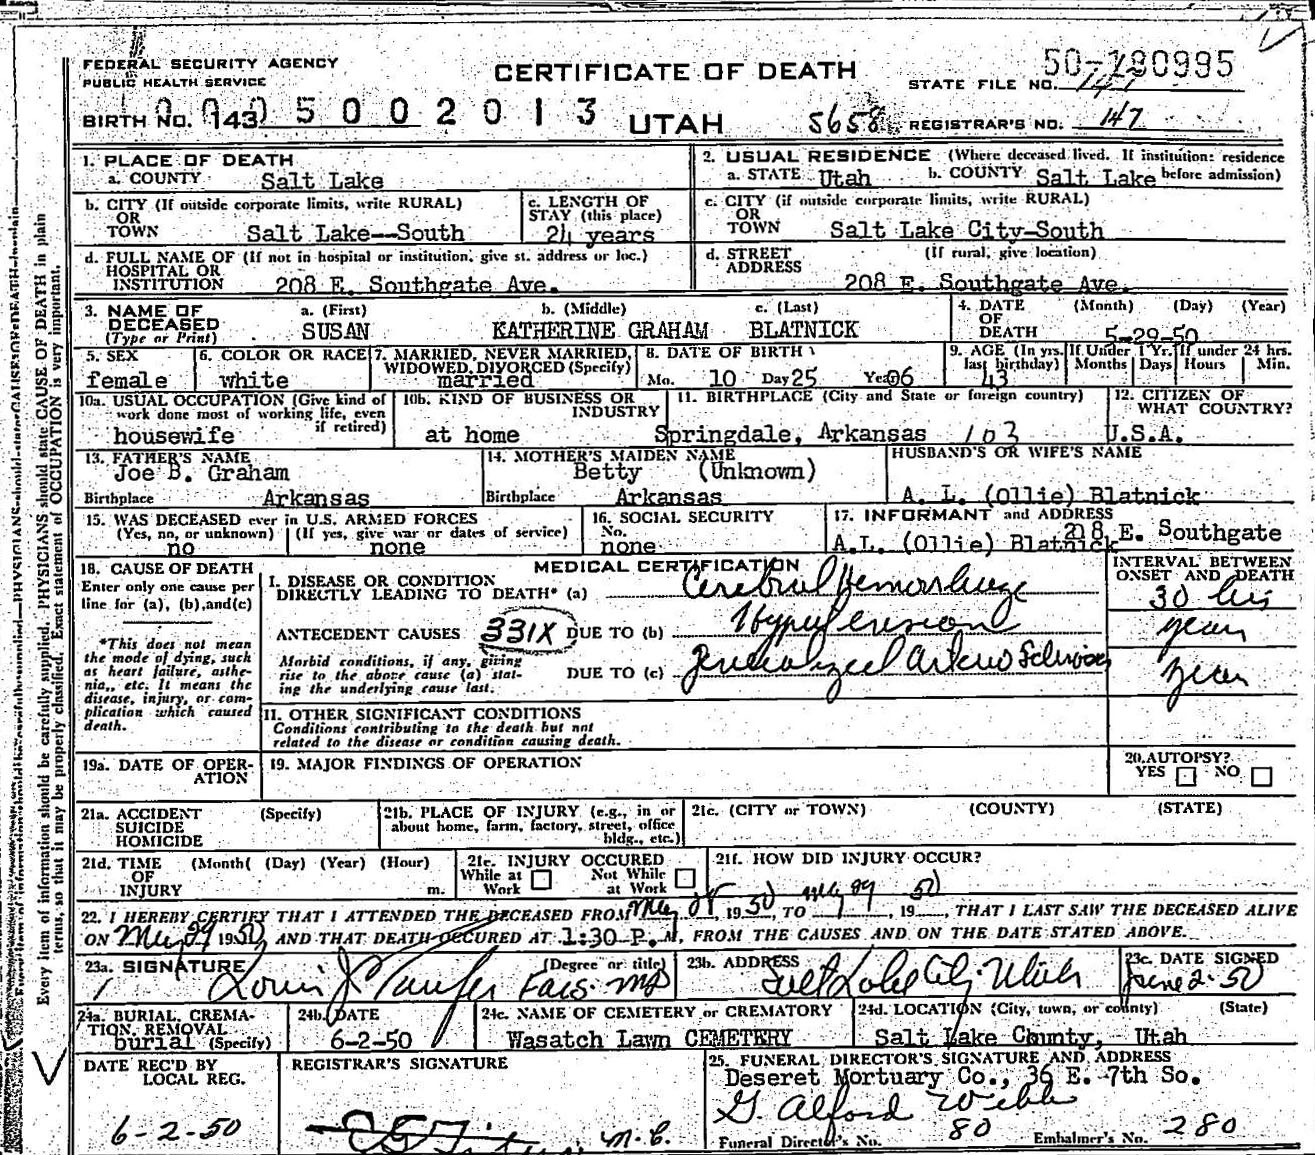 FEDERAL SECURITY AGENCY
PUBLIC HEALTH SERVICE
CERTIFICATE OF DEATH
50-180995
STATE FILE NO. 147
BIRTH NO. 143 0005002013 UTAH 5658 REGISTRAR'S NO. 147
Every item of information should be carefully supplied. PHYSICIANS should state CAUSE OF DEATH in plain
terms, so that it may be properly classified. Exact statement of OCCUPATION is very important.
1. PLACE OF DEATH
a. COUNTY Salt Lake
2. USUAL RESIDENCE (Where deceased lived. If institution: residence before admission)
a. STATE Utah b. COUNTY Salt Lake
b. CITY (If outside corporate limits, write RURAL)
OR
TOWN Salt Lake--South
c. LENGTH OF
STAY (this place)
24 years
c. CITY (if outside corporate limits, write RURAL)
OR
TOWN Salt Lake City-South
d. FULL NAME OF (If not in hospital or institution, give st. address or loc.)
HOSPITAL OR
INSTITUTION 208 E. Southgate Ave.
d. STREET (If rural, give location)
ADDRESS 208 E. Southgate Ave.
3. NAME OF DECEASED (Type or Print)
a. (First) b. (Middle) c. (Last)
SUSAN KATHERINE GRAHAM BLATNICK
4. DATE OF DEATH (Month) (Day) (Year)
5-29-50
5. SEX
female
6. COLOR OR RACE
white
7. MARRIED, NEVER MARRIED,
WIDOWED, DIVORCED (Specify)
married
8. DATE OF BIRTH
Mo. 10 Day 25 Year 06
9. AGE (In yrs. last birthday)
43
If Under 1 Yr. Months Days
If under 24 hrs. Hours Min.
10a. USUAL OCCUPATION (Give kind of
work done most of working life, even
if retired)
housewife
10b. KIND OF BUSINESS OR
INDUSTRY
at home
11. BIRTHPLACE (City and State or foreign country)
Springdale, Arkansas 103
12. CITIZEN OF
WHAT COUNTRY?
U.S.A.
13. FATHER'S NAME
Joe B. Graham
Birthplace Arkansas
14. MOTHER'S MAIDEN NAME
Betty (Unknown)
Birthplace Arkansas
HUSBAND'S OR WIFE'S NAME
A. L. (Ollie) Blatnick
15. WAS DECEASED ever in U.S. ARMED FORCES
(Yes, no, or unknown) (If yes, give war or dates of service)
no none
16. SOCIAL SECURITY
No.
none
17. INFORMANT and ADDRESS
A.L. (Ollie) Blatnick E. Southgate
18. CAUSE OF DEATH
Enter only one cause per
line for (a), (b), and (c)
*This does not mean
the mode of dying, such
as heart failure, asthe-
nia, etc. It means the
disease, injury, or com-
plication which caused
death.
MEDICAL CERTIFICATION
I. DISEASE OR CONDITION
DIRECTLY LEADING TO DEATH* (a) Cerebral Hemorrhage
ANTECEDENT CAUSES 331X DUE TO (b) Hypertension
Morbid conditions, if any, giving
rise to the above cause (a) stat-
ing the underlying cause last.
DUE TO (c) Generalized Arterio Sclerosis
INTERVAL BETWEEN
ONSET AND DEATH
30 hrs
years
years
II. OTHER SIGNIFICANT CONDITIONS
Conditions contributing to the death but not
related to the disease or condition causing death.
19a. DATE OF OPER-
ATION
19. MAJOR FINDINGS OF OPERATION
20. AUTOPSY?
YES NO
21a. ACCIDENT (Specify)
SUICIDE
HOMICIDE
21b. PLACE OF INJURY (e.g., in or
about home, farm, factory, street, office
bldg., etc.)
21c. (CITY or TOWN) (COUNTY) (STATE)
21d. TIME (Month) (Day) (Year) (Hour)
OF
INJURY m.
21e. INJURY OCCURED
While at Work Not While at Work
21f. HOW DID INJURY OCCUR?
22. I HEREBY CERTIFY THAT I ATTENDED THE DECEASED FROM May 28, 1950, TO May 29, 1950, THAT I LAST SAW THE DECEASED ALIVE
ON May 29 1950, AND THAT DEATH OCCURED AT 1:30 P.M, FROM THE CAUSES AND ON THE DATE STATED ABOVE.
23a. SIGNATURE (Degree or title)
Louis J MD
23b. ADDRESS
Salt Lake City Utah
23c. DATE SIGNED
June 2-50
24a. BURIAL, CREMA-
TION, REMOVAL
burial (Specify)
24b. DATE
6-2-50
24c. NAME OF CEMETERY or CREMATORY
Wasatch Lawn CEMETERY
24d. LOCATION (City, town, or county) (State)
Salt Lake County, Utah
DATE REC'D BY
LOCAL REG.
6-2-50
REGISTRAR'S SIGNATURE
25. FUNERAL DIRECTOR'S SIGNATURE AND ADDRESS
Deseret Mortuary Co., 36 E. 7th So.
G. Alford Webb
Funeral Director's No. 80 Embalmer's No. 280